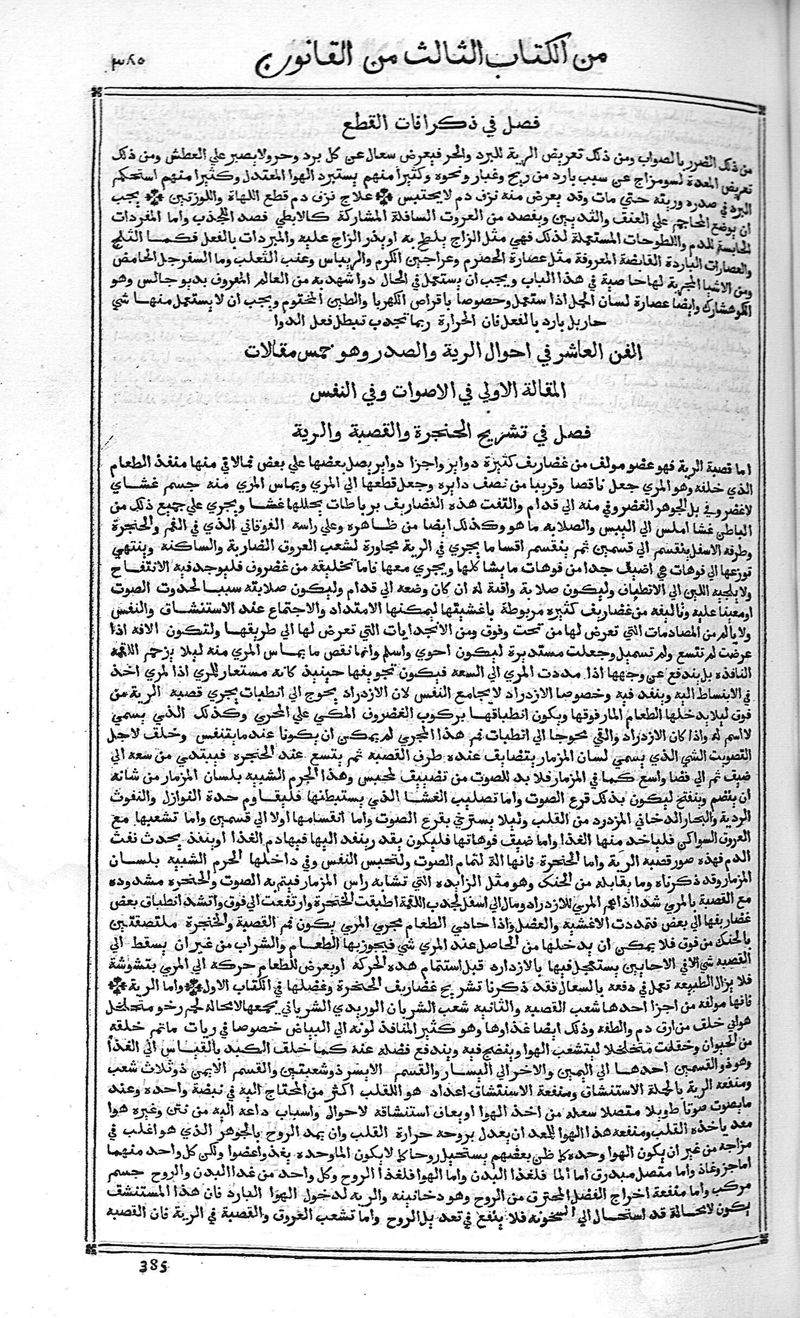 من الكتاب الثالث من القانون
٣٨٥
فصل في ذكر افات القطع
من ذلك الضرر بالصواب ومن ذلك تعريض الرية للبرد والحر فيعرض سعال عن كل برد وحر ولا يصبر علي العطش ومن ذلك
تعريض المعدة لسو مزاج عن سبب بارد من ريح وغبار ونحوه وكثيرا منهم يستبرد الهوا المعتدل وكثيرا منهم استحكم
البرد في صدره وريته حتي مات وقد يعرض منه نزف دم لا يحتبس علاج نزف دم قطع اللهاة واللوزتين يجب
ان يوضع المحاجم علي العنف والثديين ويفصد من العروت السافلة المشاركة كالابطي فصد المجذب واما المفردات
الحابسة للدم واللطوحات المستعملة لذلك فهي مثل الزاج يلطخ به او يذر الزاج عليه والمبردات بالفعل فكما الثلج
والعصارات الباردة القابضة المعروفة مثل عصارة الحصرم وعراجين الكرم والريباس وعنب الثعلب وما السفرجل الحامض
ومن الاشيا المجربة لها خاصية في هذا الباب ويجب ان يستعمل في الحال دوا شهد به من العالم المعروف بديوجالس وهو
وايضا عصارة لسان الحمل اذا ستعمل وخصوصا باقراص الكهربا والطين المختوم ويجب ان لا يستعمل منها شي
حار بل بارد بالفعل فان الحرارة ربما تجذب تبطل فعل الدوا
الفن العاشر في احوال الرية والصدر وهو خمس مقالات
المقالة الاولي في الاصوات وفي النفس
فصل في تشريح الحنجرة والقصبة والرية
اما قصبة الرية فهو عضو مولف من غضاريف كثيرة دواير واجزا دواير يصل بعضها علي بعض فما لاقي منها منفذ الطعام
الذي خلفه وهو المري جعل ناقصا وقريبا من نصف دايره وجعل قطعها الي المري ويماس المري منه جسم غشاي
لا غضروفي بل الجوهر الغضروفي منه الي قدام والتفت هذه الغضاريف برباطات يجللها غشا ويجري علي جميع ذلك من
الباطن غشا املس الي اليبس والصلابه ما هو وكذلك ايضا من ظاهره وعلي راسه الفوقاني الذي في الفم والحنجرة
وطرفه الاسفل ينقسم الي قسمين ثم ينقسم اقسا ما يجري في الرية مجاورة لشعب العروق الضاربة والساكنه وينتهي
توزعها الي فوهات هي اضيف جدا من فوهات ما يشا كلها ويجري معها فاما تخليقه من غضروف فليوجد فيه الانتفاح
ولا يلجيه اللين الي الانطباف وليكون صلا بة واقية له ان كان وضعه الي قدام وليكون صلابته سببا لحدوت الصوت
او معينا عليه وتاليفه من غضاريف كثيره مربوطة باغشية ليمكنها الامتداد والاجتماع عند الاستنشاق والنفس
ولا يالم من المصادمات التي تعرض لها من تحت وفوق ومن الانجدابات التي تعرض لها الي طريقها ولتكون الافه اذا
عرضت لم تتسع ولم تسمل وجعلت مستديرة ليكون احوي واسلم وانما نقص ما يماس المري منه ليلا يزحم اللقمه
النافذه بل يندفع عن وجهها اذا مددت المري الي السعه فيكون تجويفها حينيذ كانه مستعار للمري اذا لمري اخذ
في الانبساط اليه وينفد فيه وخصوصا الازدراد لا يجامع النفس لان الازدراد يحوج الي انطباف مجري قصبه الرية من
فوق ليلا يدخلها الطعام المار فوقها ويكون انطباقها بركوب الغضروف المكي علي المجري وكذلك الذي يسمي
لا اسم له واذا كان الازدراد والقي محوجا الي انطباف فم هذا المجري لم يمكن ان يكونا عند ما يتنفس وخلف لاجل
التصويت الشي الذي يسمي لسان المزمار يتضايف عنده طرف القصبه ثم يتسع عند الحنجره فيبتدي من سعه الي
ضيف ثم الي فضا واسع كما في المزمار فلا بد للصوت من تضييف لمجبس وهذا الجرم الشبيه بلسان المزمار من شانه
ان ينضم وينفتح ليكون بذلك قرع الصوت واما تصليب الغشا الذي يستبطنها فليقا وم حدة النوازل والنفوث
الردية والبخار الدخاني المزدرد من القلب وليلا يسترخي بقرع الصوت واما انقسامها اولا الي قسمين واما تشعبها مع
العروف السواكن فلياخد منها الغذا واما ضيف فوهاتها فليكون بقد ر ينفد اليها فيها دم الغذا او ينفذ يحدث نفث
الدم فهذه صور قصبه الرية واما الحنجرة فانها الة لتمام الصوت ولتحبس النفس وفي داخلها الجرم الشبيه بلسان
المزمار وقد ذكرناه وما يقابله من الحنك وهو مثل الزايده التي تشابه راس المزمار فيتم به الصوت والحنجره مشدوده
مع القصبة بالمري شدا اذا هم المري للازدراد ومال الي اسفل لجدب اللقمة اطبقت الحنجرة وارتفعت الي فوق واتشد انطباق بعض
غضاريفها الي بعض فتمددت الاغشية والعضل واذا حادي الطعام مجري المري يكون فم القصبة والحنجرة ملتصقتين
بالحنك من فوق فلا يمكن ان يدخلها من الحاصل عند المري شي فيجوز بها الطعام والشراب من غير ان يسقط الي
القصبه شي الا في الاحايين يستعجل فيها بالازدراد قبل استتمام هذه الحركة او يعرض للطعام حركه الي المري بتشوشة
فلا يزال الطبيعه تعمل في دفعه بالسعال فقد ذكرنا تشريح غضاريف الحنجرة وعضلها في الكتاب الاول واما الرية
فانها مولفه من اجزا احدها شعب القصبه والثانيه شعب الشريان الوريدي الشرياني يجمعها لا محاله لحم رخو متخلخل
هواي خلف من ارق دم والطفه وذلك ايضا غذاوها وهو كثير المنافذ لونه الي البياض خصوصا في ريات ما تم خلقه
من الحيوان وخلقت متخلخلا ليتشعب الهوا وينضج فيه ويندفع فضله عنه كما خلف الكبد بالقياس الي الغذا
وهو ذو القسمين احدها الي اليمين والاخر الي اليسار والقسم الايسر ذو شعبتين والقسم الايمن ذو ثلاث شعب
ومنفعة الرية بالجملة الاستنشاق ومنفعة الاستنشاق اعداد هوا للقلب اكثر من المحتاج اليه في نبضة واحده وعند
ما يصوت صوتا طويلا متصلا سعله من اخذ الهوا او يعاف استنشاقه لاحوال واسباب داعه اليه من نتن وغيره هوا
معد ياخذه القلب ومنفعه هذا الهوا المعد ان يعدل بروحه حرارة القلب وان يمد الروح بالجوهر الذي هو اغلب في
مزاجه من غير ان يكون الهوا وحده كما ظن بعضهم يستحيل روحا كما لا يكون الما وحده يغذو عضوا ولكن كل واحد منهما
اما جز غاذ واما متصل مبدرق اما الما فلغذا البدن واما الهوا فلغذا الروح وكل واحد من غذا البدن والروح جسم
مركب واما منفعة اخراج الفضل المحترق من الروح وهو دخانيته والريه لدخول الهوا البارد فان هذا المستنشف
يكون لا محالة قد استحال الي السخونه فلا ينفع في تعد يل الروح واما تشعب العروق والقصبة في الرية فان القصبه
385